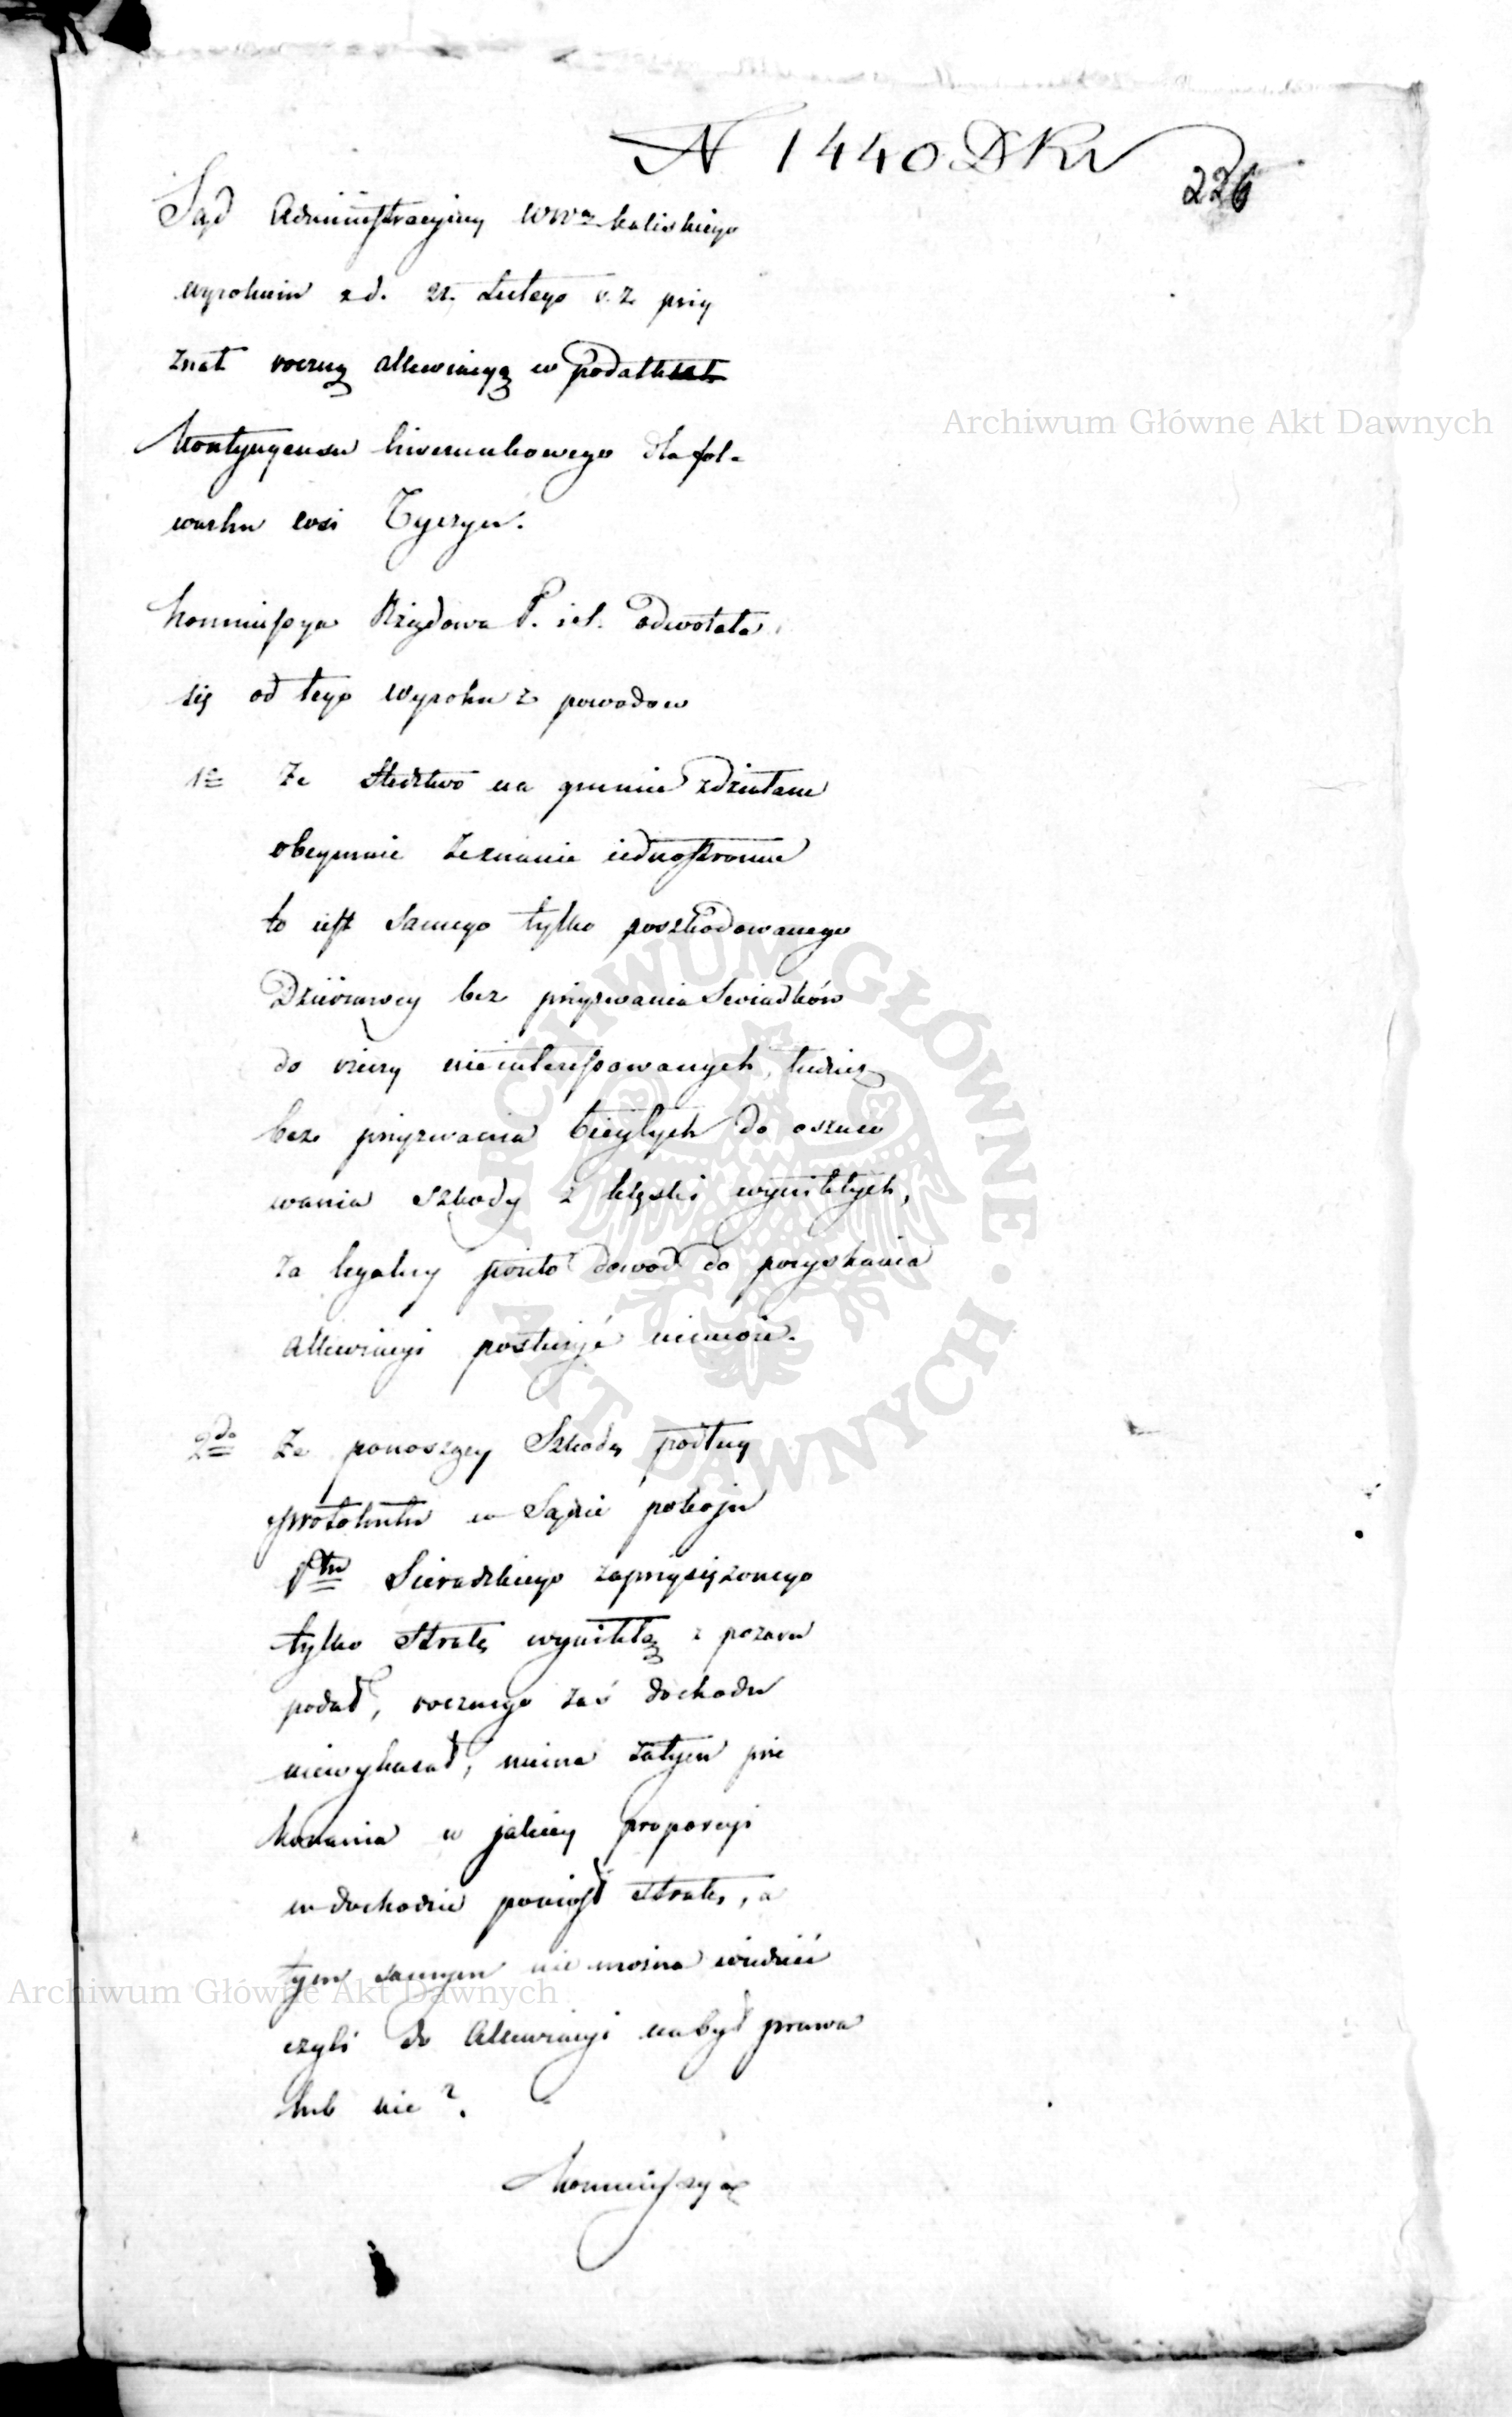 N 1440 DKr
226
Sąd Administracyiny Wwa kaliskiego
wyrokiem z d. 21. Lutego r. z. przy
znał roczną allewiacyą w podatku
kontyngensu liwerunkowego dla fol-
warku wsi Tyczyn.
Kommissya Rządowa P. i S. odwołała
się od tego Wyroku z powodow
1o Że śledztwo na gruncie zdziałane
obeymuie zeznanie iednostronne
to iest samego tylko poszkodowanego
Dzierzawcy bez przyzwania Swiadków
do rzeczy nieinteressowanych, tudzież
bez przyzwania biegłych do oszaco
wania szkody z klęski wynikłych,
za legalny przeto dowod do pozyskania
allewiacyi posłużyć niemoże.
2do Że ponoszący Szkodę podług
protokułu w Sądzie pokoju
Ptu Sieradzkiego zaprzysiężonego
tylko stratę wynikłą z pożaru
podał, rocznego zaś dochodu
niewykazał, niema zatym prze
konania w jakiey proporcyi
w dochodzie poniosł stratę, a
tym samym nie można wiedzieć
czyli do Allewiacyi nabył prawa
lub nie?.
Kommissya
Archiwum Główne Akt Dawnych
ARCHIWUM GŁÓWNE AKT DAWNYCH
Archiwum Główne Akt Dawnych